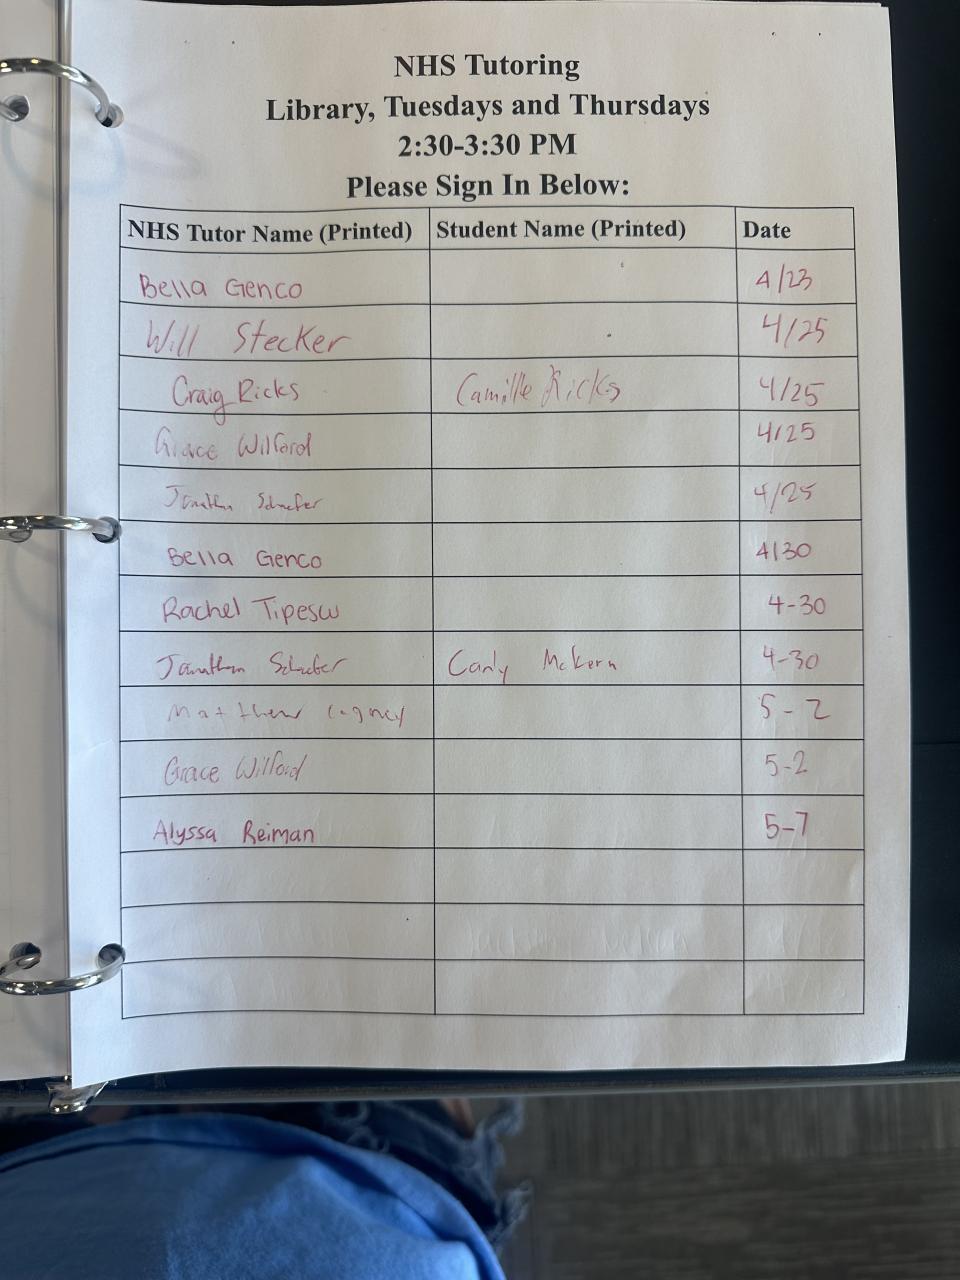 NHS Tutoring
Library, Tuesdays and Thursdays
2:30-3:30 PM
Please Sign In Below:
NHS Tutor Name (Printed) Student Name (Printed) Date
Bella Genco 4/23
Will Stecker 4/25
Craig Ricks Camille Ricks 4/25
Grace Wilford 4/25
Jonathan Schaefer 4/25
Bella Genco 4/30
Rachel Tipescu 4-30
Jonathan Schaefer Carly McKern 4-30
Matthew 5-2
Grace Wilford 5-2
Alyssa Reiman 5-7